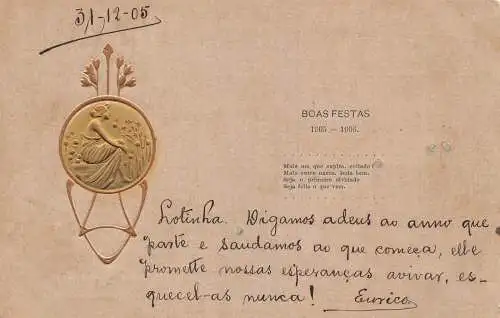 31-12-05
BOAS FESTAS
1905 — 1906.
Mais um que expira, coitado!
Mais outro nasce, inda bem.
Seja o primeiro olvidado
Seja feliz o que vem.
Lotinha. Digamos adeus ao anno que
parte e saudamos ao que começa, elle
promette nossas esperanças avivar, es-
quecel-as nunca! Eurico